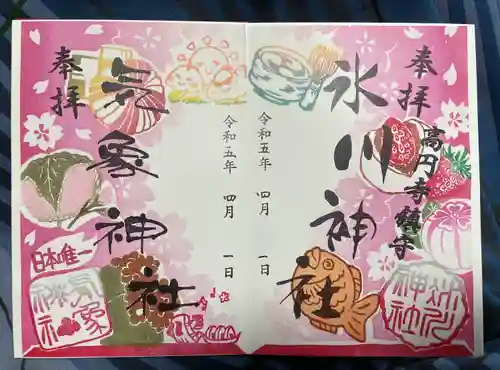 奉拝
高円寺鎮守
氷川神社
氷川神社
令和五年 四月 一日
令和五年 四月 一日
奉拝
気象神社
日本唯一
気象神社